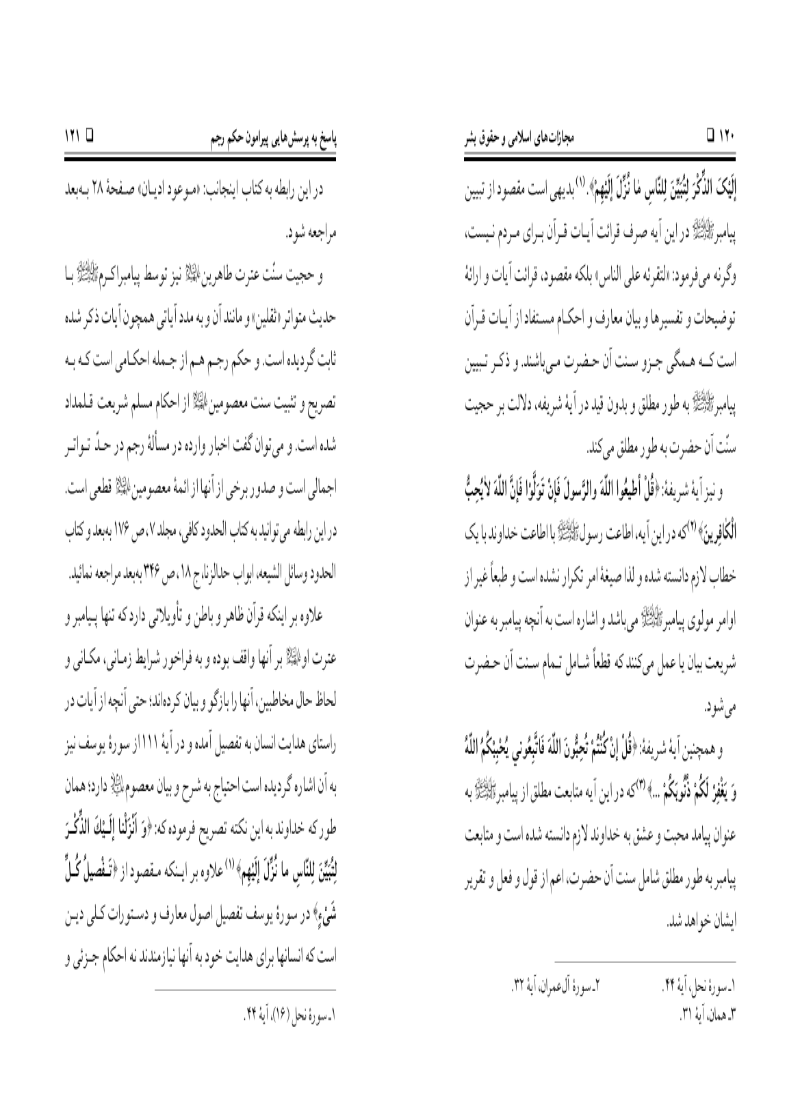 ۱۲۰ ❑ مجازات‌های اسلامی و حقوق بشر
إلَیْکَ الذِّکْرَ لِتُبَیِّنَ لِلنَّاسِ مٰا نُزِّلَ إلَیْهِمْ﴾.(۱) بدیهی است مقصود از تبیین
پیامبرﷺ در این آیه صرف قرائت آیـات قـرآن بـرای مـردم نیست،
وگرنه می‌فرمود: «لتقرئه علی الناس» بلکه مقصود، قرائت آیات و ارائهٔ
توضیحات و تفسیرها و بیان معارف و احکـام مستـفاد از آیـات قـرآن
است کـه همـگی جـزو سنت آن حـضرت مـی‌باشند. و ذکـر تـبیین
پیامبرﷺ به طور مطلق و بدون قید در آیهٔ شریفه، دلالت بر حجیت
سنّت آن حضرت به طور مطلق می‌کند.
و نیز آیهٔ شریفهٔ: ﴿قُلْ أطیعُوا اللّٰهَ والرَّسولَ فَإنْ تَوَلَّوْا فَإنَّ اللّٰهَ لاٰیُحِبُّ
الْکٰافِرینَ﴾(۲) که در این آیه، اطاعت رسولﷺ با اطاعت خداوند با یک
خطاب لازم دانسته شده و لذا صیغهٔ امر تکرار نشده است و طبعاً غیر از
اوامر مولوی پیامبرﷺ می‌باشد و اشاره است به آنچه پیامبر به عنوان
شریعت بیان یا عمل می‌کنند که قطعاً شـامل تـمام سـنت آن حـضرت
می‌شود.
و همچنین آیهٔ شریفهٔ: ﴿قُلْ إنْ کُنْتُمْ تُحِبُّونَ اللّٰهَ فَاتَّبِعُوني یُحْبِبْکُمُ اللّٰهُ
وَ یَغْفِرْ لَکُمْ ذُنُوبَکُمْ ...﴾(۳) که در این آیه متابعت مطلق از پیامبرﷺ به
عنوان پیامد محبت و عشق به خداوند لازم دانسته شده است و متابعت
پیامبر به طور مطلق شامل سنت آن حضرت، اعم از قول و فعل و تقریر
ایشان خواهد شد.
۱ـ سورهٔ نحل، آیهٔ ۴۴. ۲ـ سورهٔ آل‌عمران، آیهٔ ۳۲.
۳ـ همان، آیهٔ ۳۱.
پاسخ به پرسش‌هایی پیرامون حکم رجم ❑ ۱۲۱
در این رابطه به کتاب اینجانب: «مـوعود ادیـان» صـفحهٔ ۲۸ بـه‌بعد
مراجعه شود.
و حجیت سنّت عترت طاهرین؏ نیز توسط پیامبراکـرمﷺ بـا
حدیث متواتر «ثقلین» و مانند آن و به مدد آیاتی همچون آیات ذکر شده
ثابت گردیده است. و حکم رجـم هـم از جـمله احکـامی است کـه بـه
تصریح و تثبیت سنت معصومین؏ از احکام مسلم شریعت قـلمداد
شده است. و می‌توان گفت اخبار وارده در مسألهٔ رجم در حـدّ تـواتـر
اجمالی است و صدور برخی از آنها از ائمهٔ معصومین؏ قطعی است.
در این رابطه می‌توانید به کتاب الحدود کافی، مجلد ۷، ص ۱۷۶ به‌بعد و کتاب
الحدود وسائل الشیعه، ابواب حدالزنا، ج ۱۸، ص ۳۴۶ به‌بعد مراجعه نمائید.
علاوه بر اینکه قرآن ظاهر و باطن و تأویلاتی دارد که تنها پـیامبر و
عترت او؏ بر آنها واقف بوده و به فراخور شرایط زمـانی، مکـانی و
لحاظ حال مخاطبین، آنها را بازگو و بیان کرده‌اند؛ حتی آنچه از آیات در
راستای هدایت انسان به تفصیل آمده و در آیهٔ ۱۱۱ از سورهٔ یوسف نیز
به آن اشاره گردیده است احتیاج به شرح و بیان معصوم؏ دارد؛ همان
طور که خداوند به این نکته تصریح فرموده که: ﴿وَ أنْزَلْنٰا إلَـیْكَ الذِّکْـرَ
لِتُبَیِّنَ لِلنّٰاسِ مٰا نُزِّلَ إلَیْهِم﴾(۱) علاوه بر ایـنکه مـقصود از ﴿تَـفْصیلُ کُـلِّ
شَیْءٍ﴾ در سورهٔ یوسف تفصیل اصول معارف و دسـتورات کـلی دیـن
است که انسانها برای هدایت خود به آنها نیازمندند نه احکام جـزئی و
۱ـ سورهٔ نحل (۱۶)، آیهٔ ۴۴.